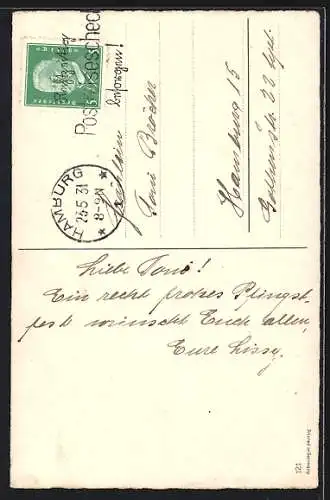 DEUTSCHES REICH
5
Postreisescheck
HAMBURG
23.5.31
8-9 N
Fräulein
Toni
Hamburg 15
22
Liebe Toni!
Ein recht frohes Pfingst-
fest wünscht Euch allen,
Eure Lissy.
121